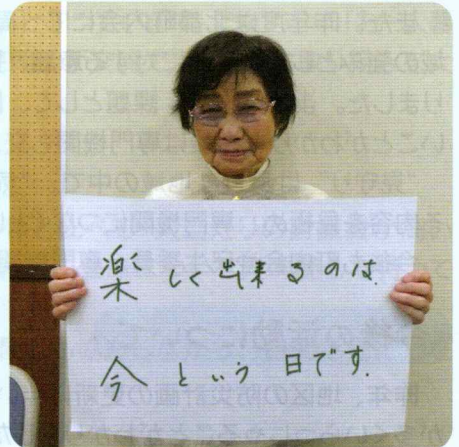 楽しく出来るのは.
今という日です.